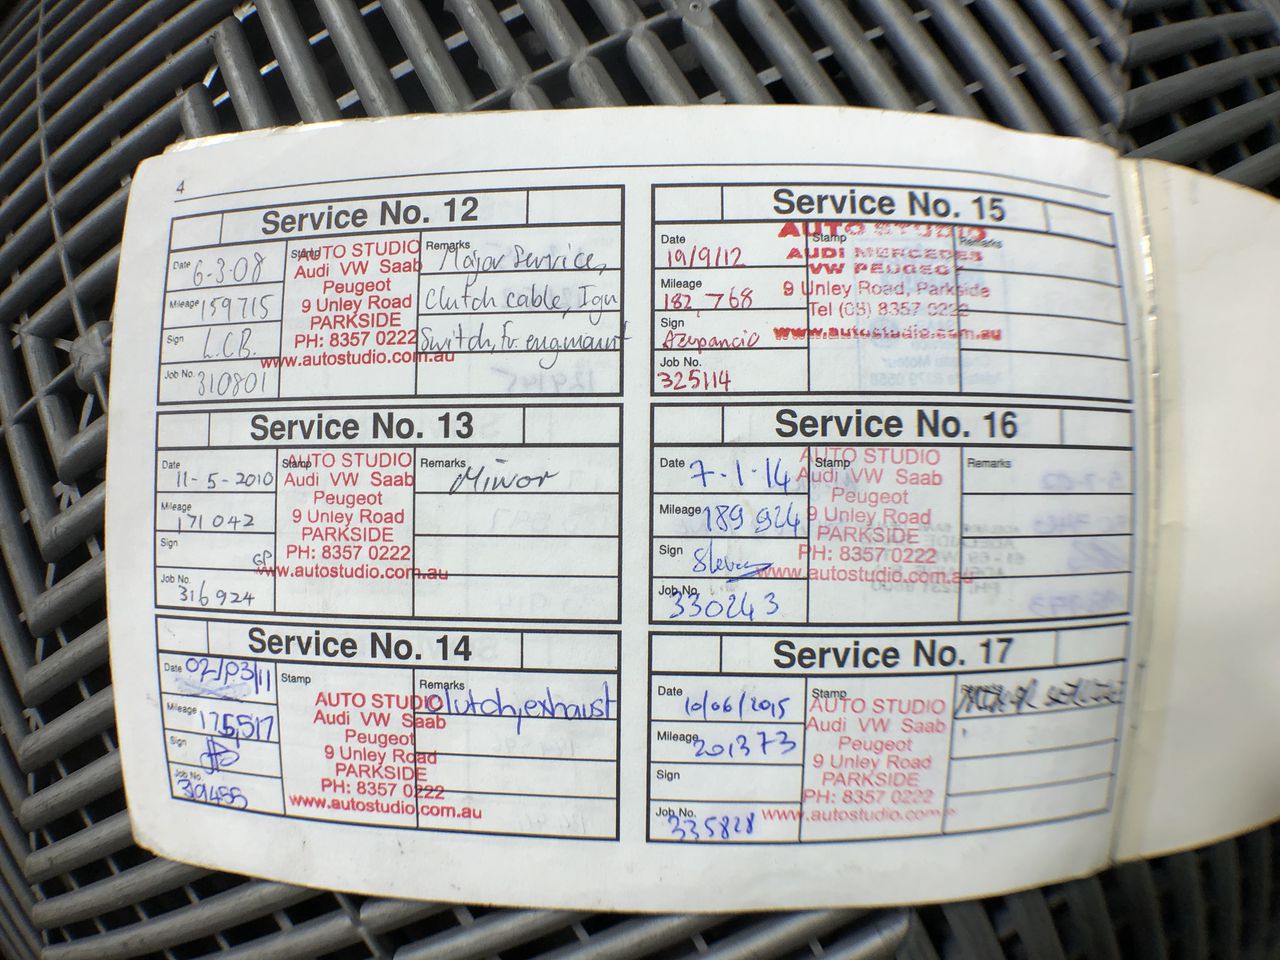 4
Service No. 12
Date 6-3-08
Mileage 159715
Sign L.C.B.
Job No. 310801
Stamp
AUTO STUDIO
Audi VW Saab
Peugeot
9 Unley Road
PARKSIDE
PH: 8357 0222
www.autostudio.com.au
Remarks
Major Service,
Clutch cable, Ign
Switch, Fr. eng mount
Service No. 13
Date 11-5-2010
Mileage 171042
Sign GP
Job No. 316924
Stamp
AUTO STUDIO
Audi VW Saab
Peugeot
9 Unley Road
PARKSIDE
PH: 8357 0222
www.autostudio.com.au
Remarks
Minor
Service No. 14
Date 02/03/11
Mileage 175,517
Sign
Job No.
Stamp
AUTO STUDIO
Audi VW Saab
Peugeot
9 Unley Road
PARKSIDE
PH: 8357 0222
www.autostudio.com.au
Remarks
clutch, exhaust
Service No. 15
Date 19/9/12
Mileage 182,768
Sign
Job No. 325114
Stamp
AUTO STUDIO
AUDI MERCEDES
VW PEUGEOT
9 Unley Road, Parkside
Tel (08) 8357 0222
www.autostudio.com.au
Remarks
Service No. 16
Date 7-1-14
Mileage 189924
Sign Steven
Job No. 330243
Stamp
AUTO STUDIO
Audi VW Saab
Peugeot
9 Unley Road
PARKSIDE
PH: 8357 0222
www.autostudio.com.au
Remarks
Service No. 17
Date 10/06/2015
Mileage 201373
Sign
Job No. 335828
Stamp
AUTO STUDIO
Audi VW Saab
Peugeot
9 Unley Road
PARKSIDE
PH: 8357 0222
www.autostudio.com.au